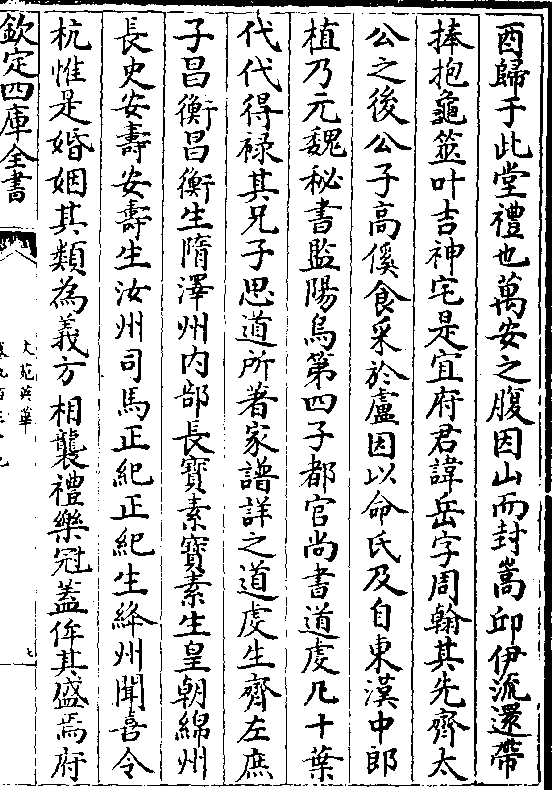 酉歸于此堂禮也萬安之腹因山而封嵩邱伊流還帶
捧抱龜筮叶吉神宅是宜府君諱岳字周翰其先齊太
公之後公子高傒食采於盧因以命氏及自東漢中郎
植乃元魏秘書監陽烏第四子都官尚書道虔凡十葉
代代得祿其兄子思道所著家譜詳之道虔生齊左庶
子昌衡昌衡生隋澤州内部長寶素寶素生皇朝綿州
長史安壽安壽生汝州司馬正紀正紀生絳州聞喜令
杭惟是婚姻其類為義方相襲禮樂冠蓋侔其盛焉府
欽定四庫全書
文苑英華